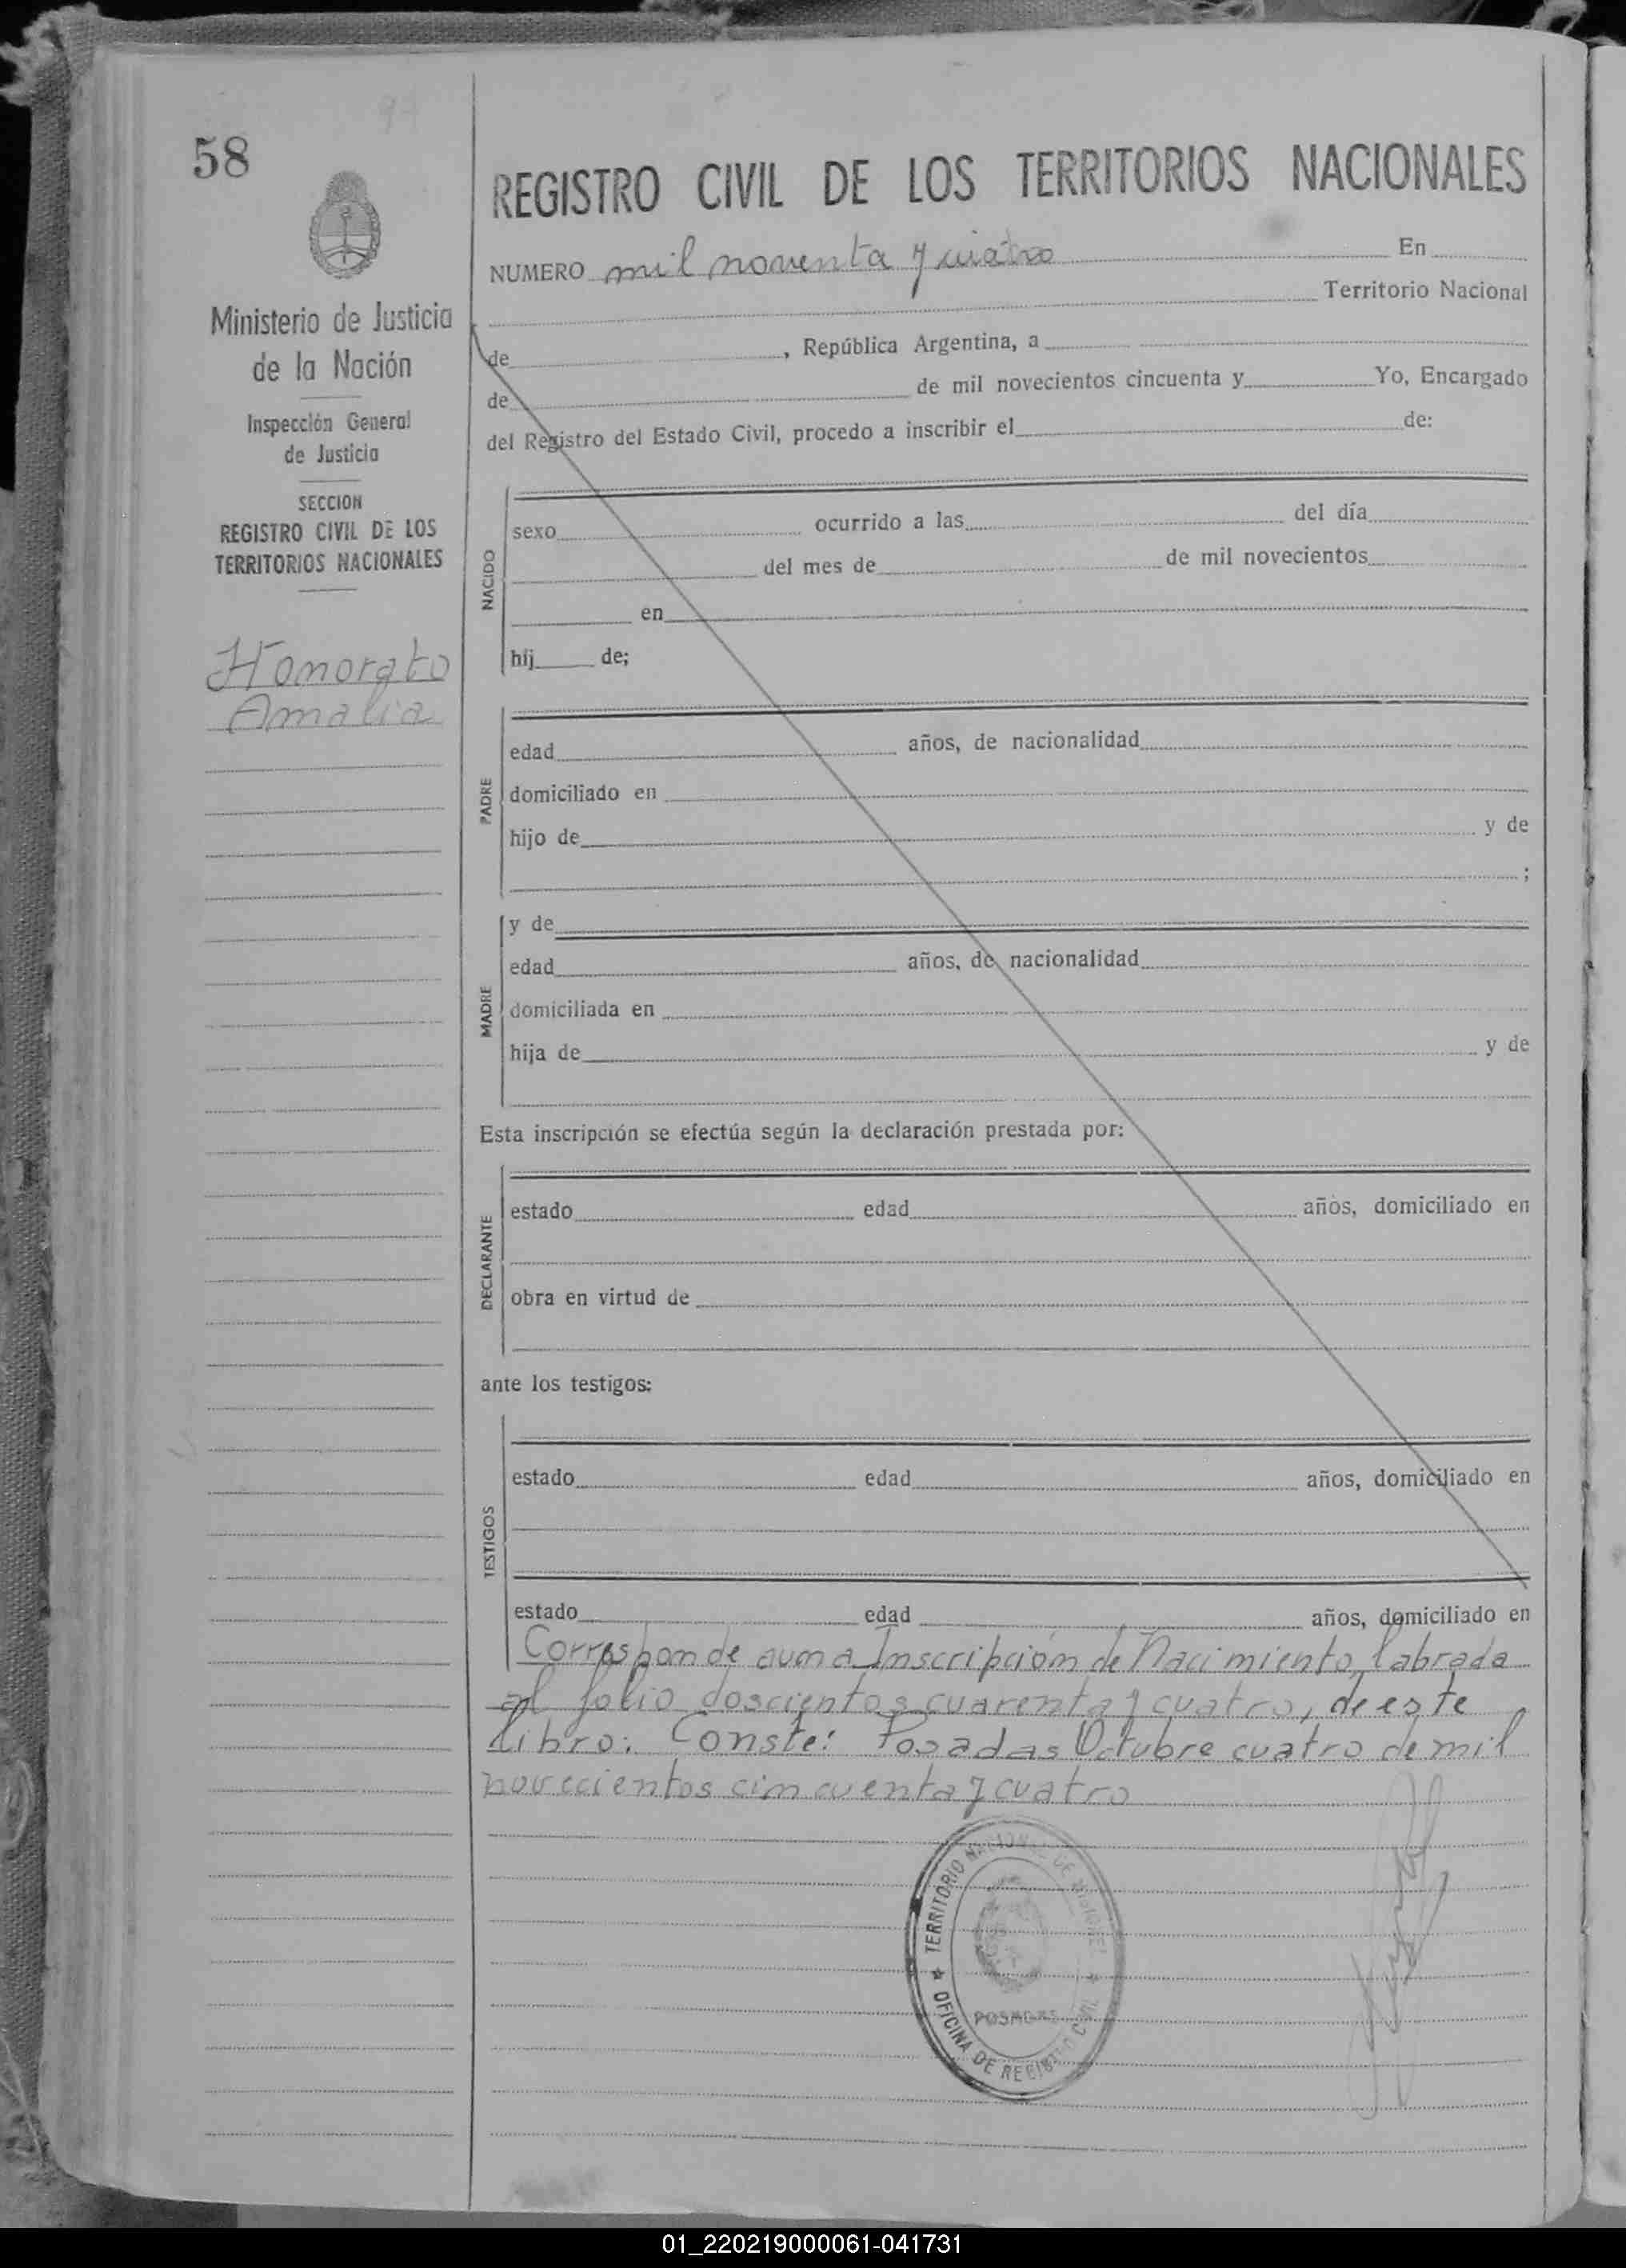 58
Ministerio de Justicia
de la Nación
Inspección General
de Justicia
SECCION
REGISTRO CIVIL DE LOS
TERRITORIOS NACIONALES
Honorato
Amalia
REGISTRO CIVIL DE LOS TERRITORIOS NACIONALES
NUMERO mil noventa y cuatro En
Territorio Nacional
de , República Argentina, a
de de mil novecientos cincuenta y Yo, Encargado
del Registro del Estado Civil, procedo a inscribir el de:
NACIDO
sexo ocurrido a las del día
del mes de de mil novecientos
en
hij de;
PADRE
edad años, de nacionalidad
domiciliado en
hijo de y de
;
MADRE
y de
edad años, de nacionalidad
domiciliada en
hija de y de
Esta inscripción se efectúa según la declaración prestada por:
DECLARANTE
estado edad años, domiciliado en
obra en virtud de
ante los testigos:
TESTIGOS
estado edad años, domiciliado en
estado edad años, domiciliado en
Corresponde a una Inscripción de Nacimiento, labrada
al folio doscientos cuarenta y cuatro, de este
libro: Conste: Posadas Octubre cuatro de mil
novecientos cincuenta y cuatro
TERRITORIO NACIONAL DE MISIONES
POSADAS
OFICINA DE REGISTRO CIVIL
01_220219000061-041731